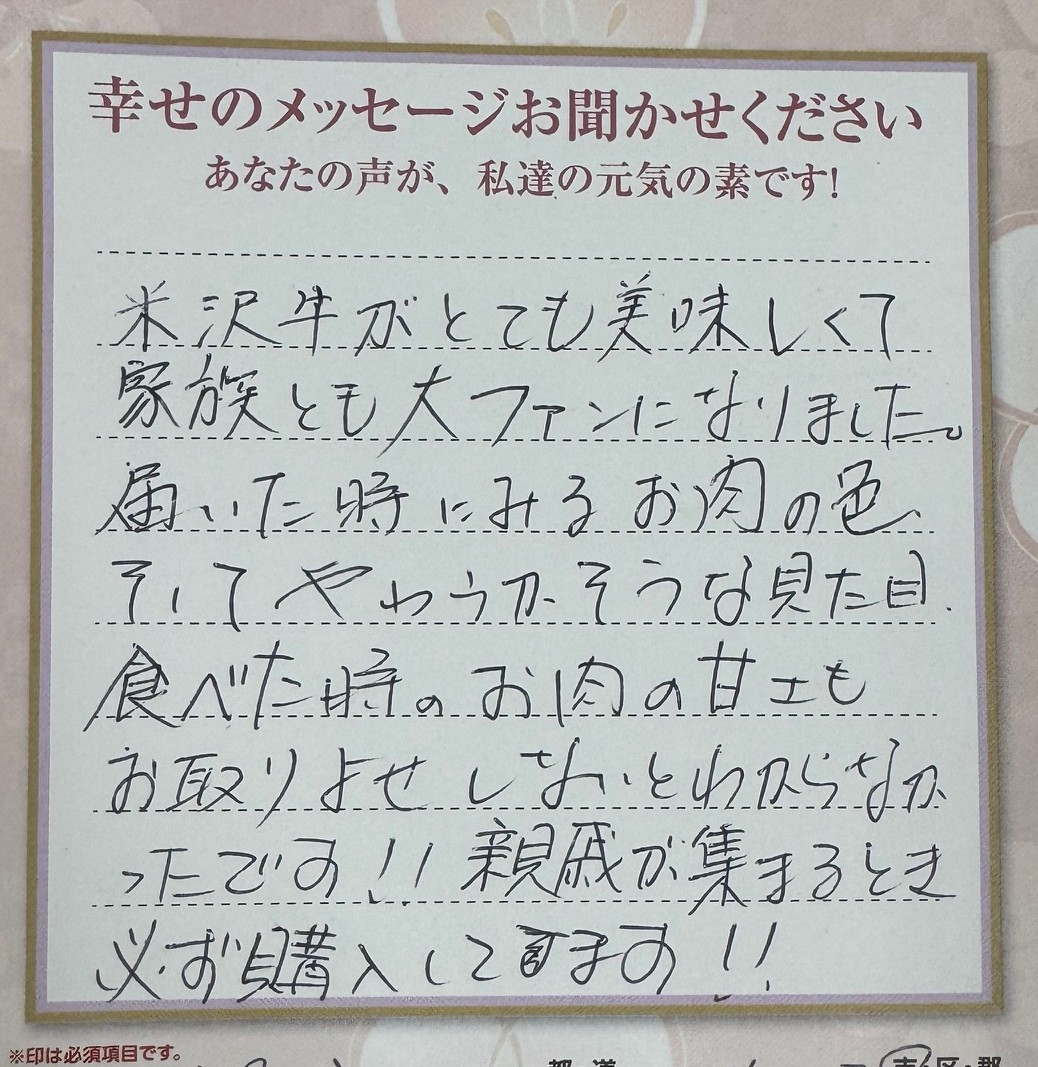 幸せのメッセージお聞かせください
あなたの声が、私達の元気の素です!
米沢牛がとても美味しくて
家族とも大ファンになりました。
届いた時にみるお肉の色、
そしてやわらかそうな見た目、
食べた時のお肉の甘さも
お取りよせしないとわからなか
ったです!! 親戚が集まるとき
必ず購入してます!!
※印は必須項目です。
都 道
市・区・郡